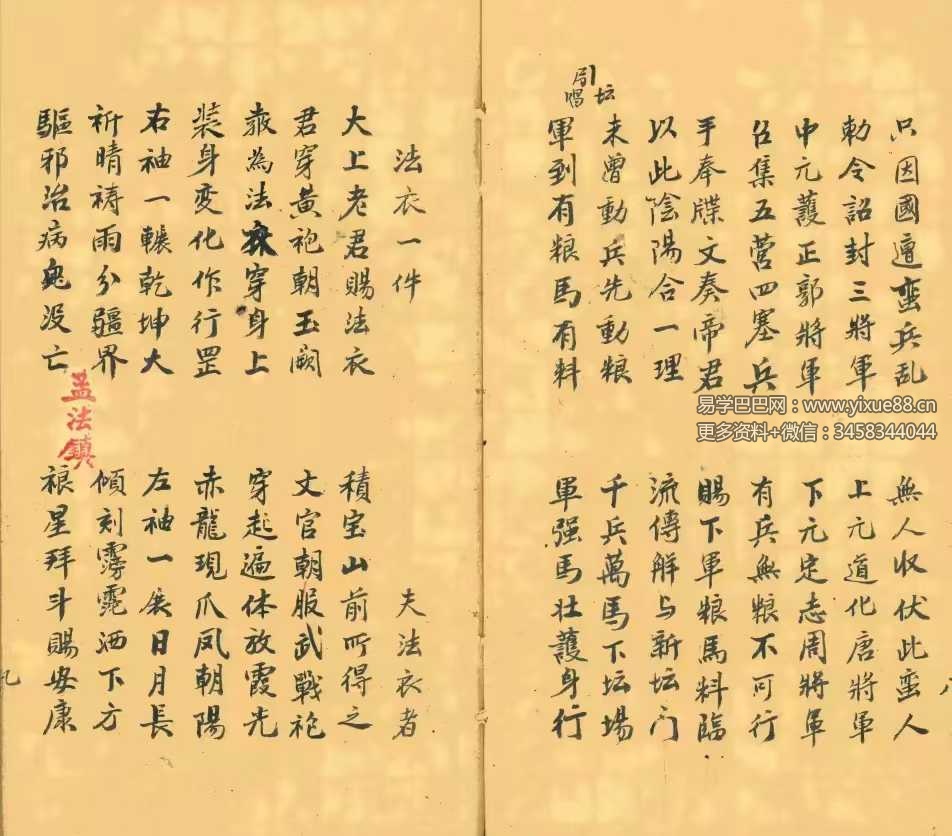 只因國遭蛮兵乱　無人収伏此蛮人
勅令詔封三將軍　上元道化唐將軍
中元護正郭將軍　下元定志周將軍
召集五营四塞兵　有兵無粮不可行
手奉牒文奏帝君　賜下軍粮馬料臨
以此陰陽合一理　流傳解与新坛门
未曾動兵先動粮　千兵萬馬下坛場
軍到有粮馬有料　軍强馬壮護身行
坛
法衣一件　夫法衣者
大上老君賜法衣　積宝山前所得之
君穿黄袍朝玉阙　文官朝服武戰袍
敕為法衣穿身上　穿起遍体放霞光
装身変化作行罡　赤龍現爪凤朝陽
右袖一輾乾坤大　左袖一展日月長
祈晴祷雨分疆界　傾刻雱霓洒下方
驅邪治病鬼没亡　禳星拜斗賜安康
孟法鎮
八
九
易学巴巴网：www.yixue88.cn
更多资料+微信：3458344044